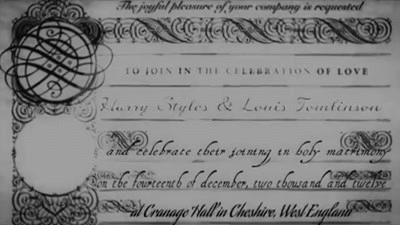 The joyful pleasure of your company is requested
TO JOIN IN THE CELEBRATION OF LOVE
Harry Styles & Louis Tomlinson
and celebrate their joining in holy matrimony
on the fourteenth of december, two thousand and twelve
at Cranage Hall in Cheshire, West England